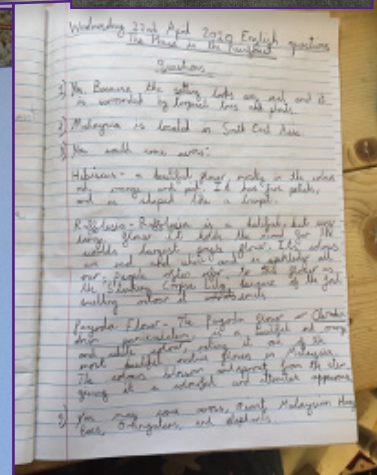 Wednesday 22nd April 2020 English questions
The Phase in the Rainforest
Questions
1) Yes. Because the setting looks very real and it
is surrounded by tropical trees and plants.
2) Malaysia is located in South East Asia
3) You would come across:
Hibiscus - a beautiful flower, mostly in the colour
red, orange and pink. It has five petals,
and is shaped like a trumpet.
Rafflesia - Rafflesia is a but very
large flower. It holds the record for the
worlds largest single flower. Its colours
are red and white and is all
over. People often refer to this flower as
the Stinking Corpse Lily, because of the foul
smelling odour it
Pagoda Flower - The Pagoda flower or
paniculatum, is a beautiful red orange
and white making it one of the
most beautiful native flowers in Malaysia.
The colours blossom from the stem
giving it a colourful and appearance
5) You may come across, Malaysian
Bees, Orangutans, and elephants